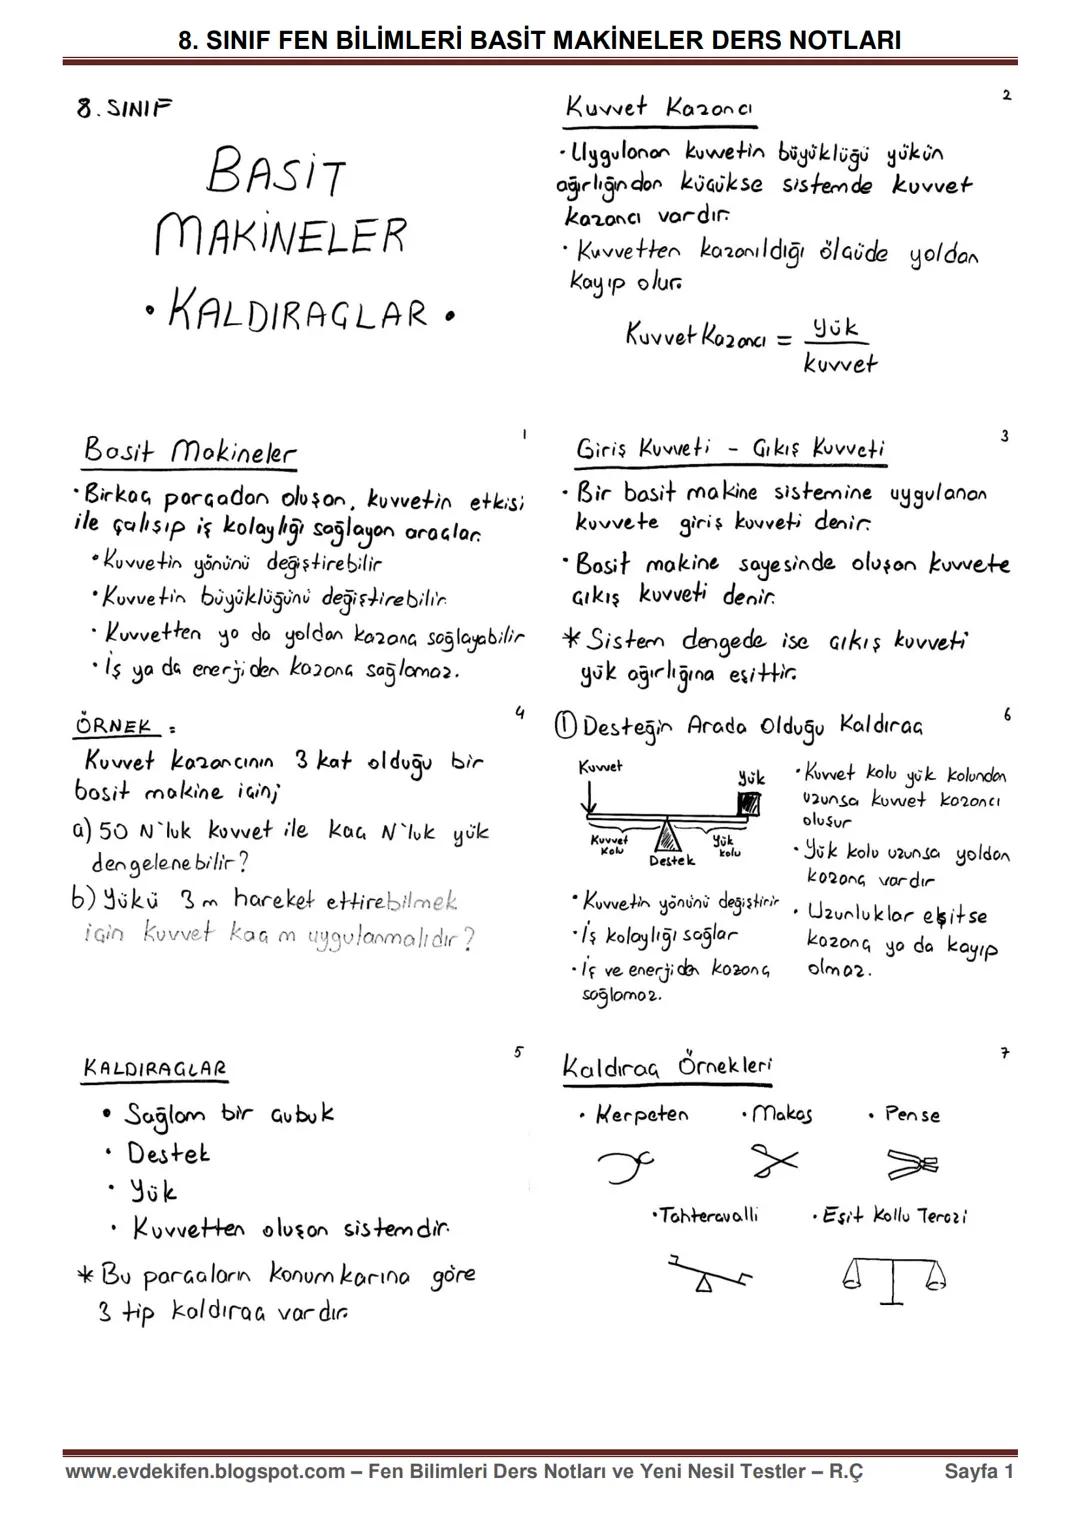 8. SINIF FEN BİLİMLERİ BASİT MAKİNELER DERS NOTLARI
8. SINIF
BASİT
MAKİNELER
• KALDIRAÇLAR •
1
Basit Makineler
• Birkaç parçadan oluşan, kuvvetin etkisi
ile çalışıp iş kolaylığı sağlayan araçlar.
• Kuvvetin yönünü değiştirebilir
• Kuvvetin büyüklüğünü değiştirebilir.
• Kuvvetten ya da yoldan kazanç sağlayabilir
• İş ya da enerjiden kazanç sağlamaz.
2
Kuvvet Kazancı
• Uygulanan kuvvetin büyüklüğü yükün
ağırlığından küçükse sistemde kuvvet
kazancı vardır.
• Kuvvetten kazanıldığı ölçüde yoldan
kayıp olur.
Kuvvet Kazancı = yük
kuvvet
3
Giriş Kuvveti - Çıkış Kuvveti
• Bir basit makine sistemine uygulanan
kuvvete giriş kuvveti denir.
• Basit makine sayesinde oluşan kuvvete
çıkış kuvveti denir.
* Sistem dengede ise çıkış kuvveti
yük ağırlığına eşittir.
4
ÖRNEK :
Kuvvet kazancının 3 kat olduğu bir
basit makine için;
a) 50 N'luk kuvvet ile kaç N'luk yük
dengelenebilir?
b) Yükü 3 m hareket ettirebilmek
için kuvvet kaç m uygulanmalıdır?
5
KALDIRAÇLAR
• Sağlam bir çubuk
• Destek
• Yük
• Kuvvetten oluşan sistemdir.
* Bu parçaların konumkarına göre
3 tip kaldıraç vardır.
6
1 Desteğin Arada Olduğu Kaldıraç
Kuvvet
Yük
Kuvvet
Kolu
Destek
Yük
kolu
• Kuvvetin yönünü değiştirir
• İş kolaylığı sağlar
• İş ve enerjiden kazanç
sağlamaz.
• Kuvvet kolu yük kolundan
uzunsa kuvvet kazancı
oluşur
• Yük kolu uzunsa yoldan
kazanç vardır
• Uzunluklar eşitse
kazanç ya da kayıp
olmaz.
7
Kaldıraç Örnekleri
• Kerpeten • Makas • Pense
• Tahteravalli • Eşit Kollu Terazi
www.evdekifen.blogspot.com – Fen Bilimleri Ders Notları ve Yeni Nesil Testler – R.Ç Sayfa 1